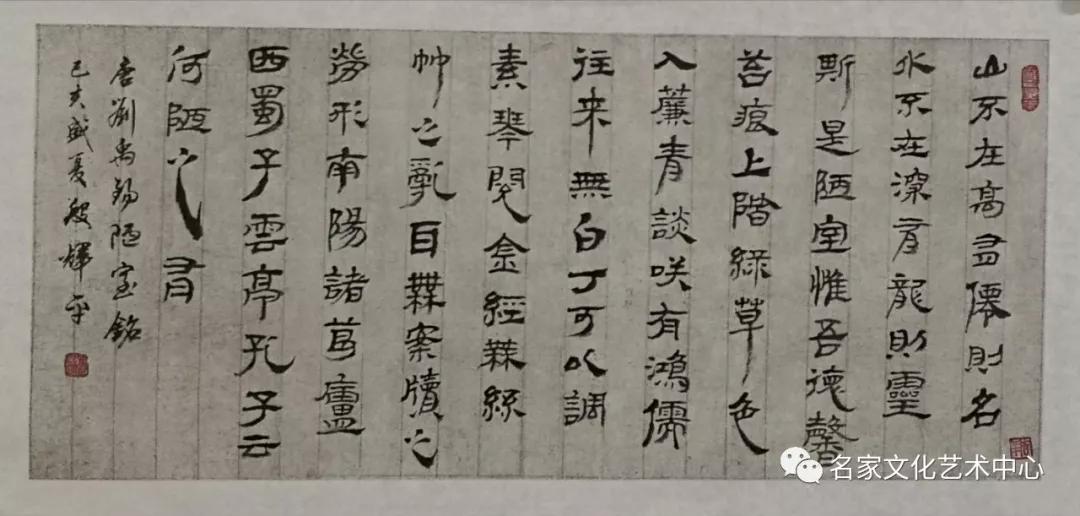 山不在高有僊則名
水不在深有龍則靈
斯是陋室惟吾德馨
苔痕上階緑草色
入薕青談咲有鴻儒
往来無白丁可以調
素琴閱金經無絲
竹之亂耳無案牘之
勞形南陽諸葛廬
西蜀子雲亭孔子云
何陋之有
唐劉禹錫陋室銘
己亥盛夏殷輝平
名家文化艺术中心